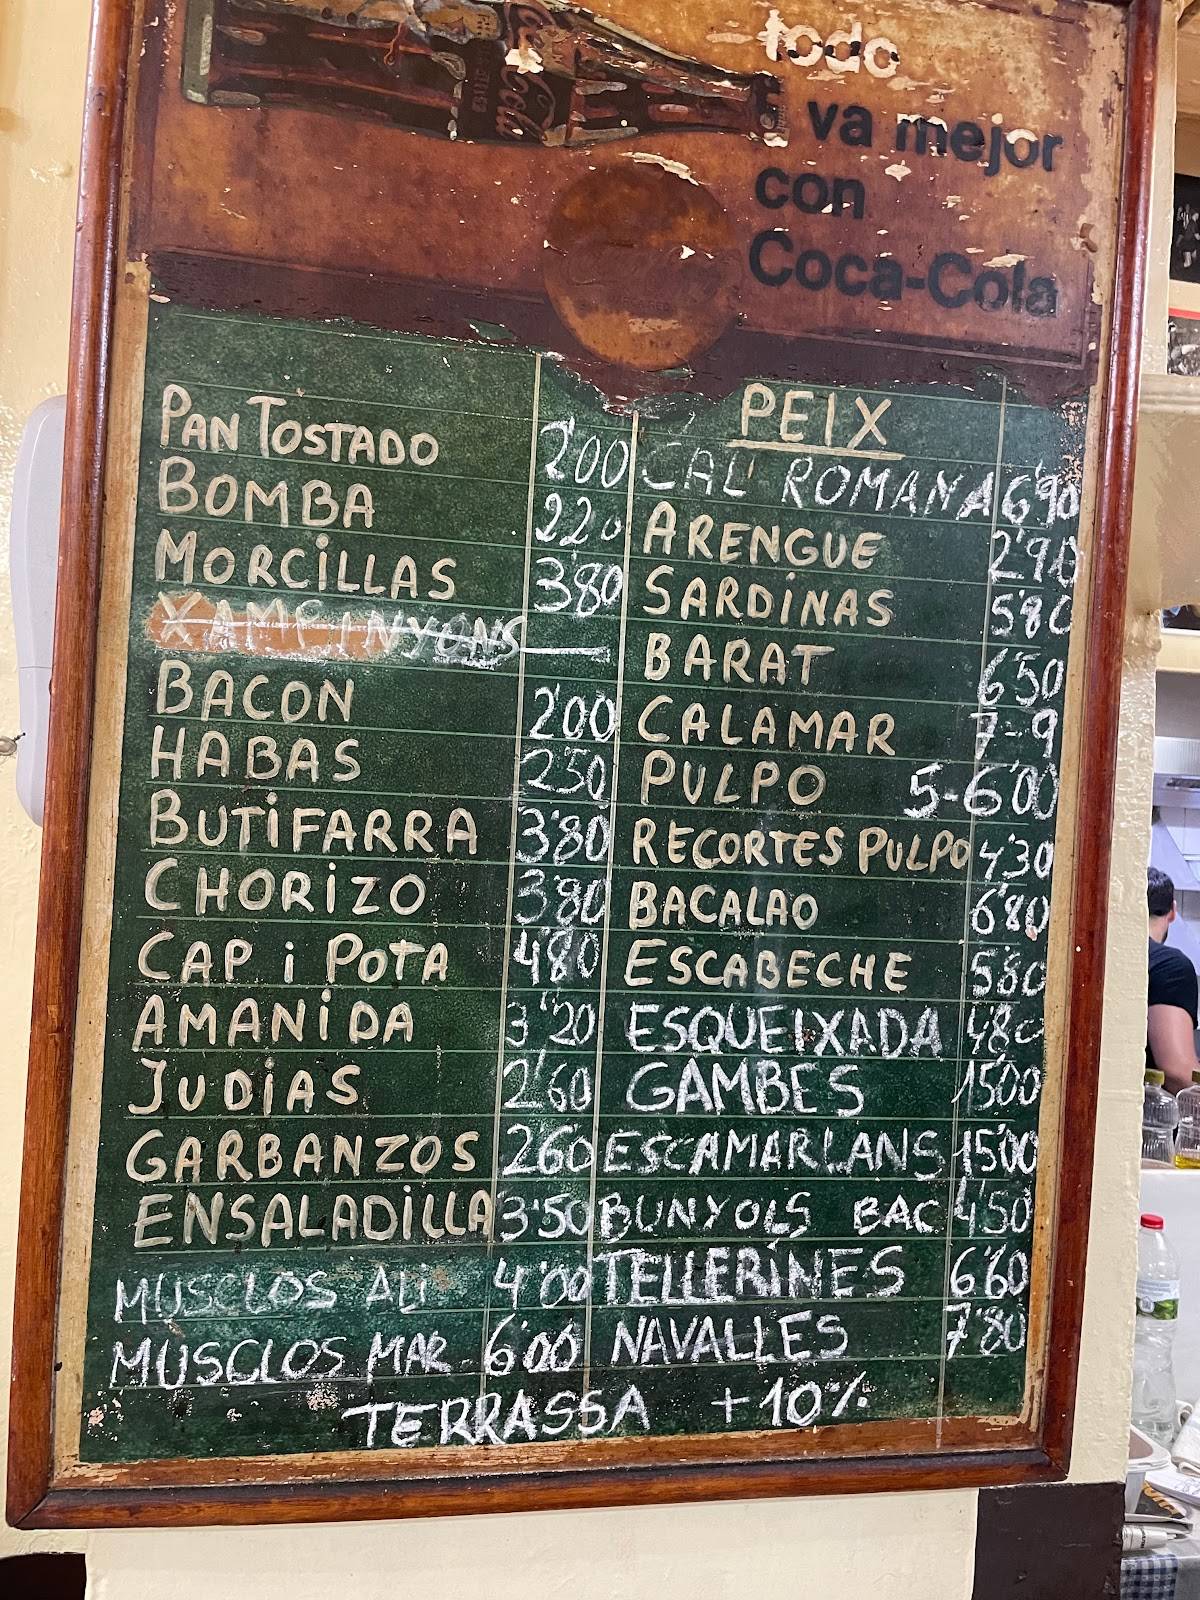 todo
va mejor
con
Coca-Cola
PAN TOSTADO 2'00
BOMBA 2'20
MORCILLAS 3'80
XAMPINYONS —
BACON 2'00
HABAS 2'50
BUTIFARRA 3'80
CHORIZO 3'80
CAP i POTA 4'80
AMANIDA 3'20
JUDIAS 2'60
GARBANZOS 2'60
ENSALADILLA 3'50
MUSCLOS ALi 4'00
MUSCLOS MAR 6'00
PEIX
CAL' ROMANA 6'90
ARENGUE 2'90
SARDINAS 5'80
BARAT 6'50
CALAMAR 7-9
PULPO 5-6'00
RECORTES PULPO 4'30
BACALAO 6'80
ESCABECHE 5'80
ESQUEIXADA 4'80
GAMBES 15'00
ESCAMARLANS 15'00
BUNYOLS BAC 4'50
TELLERINES 6'60
NAVALLES 7'80
TERRASSA +10%